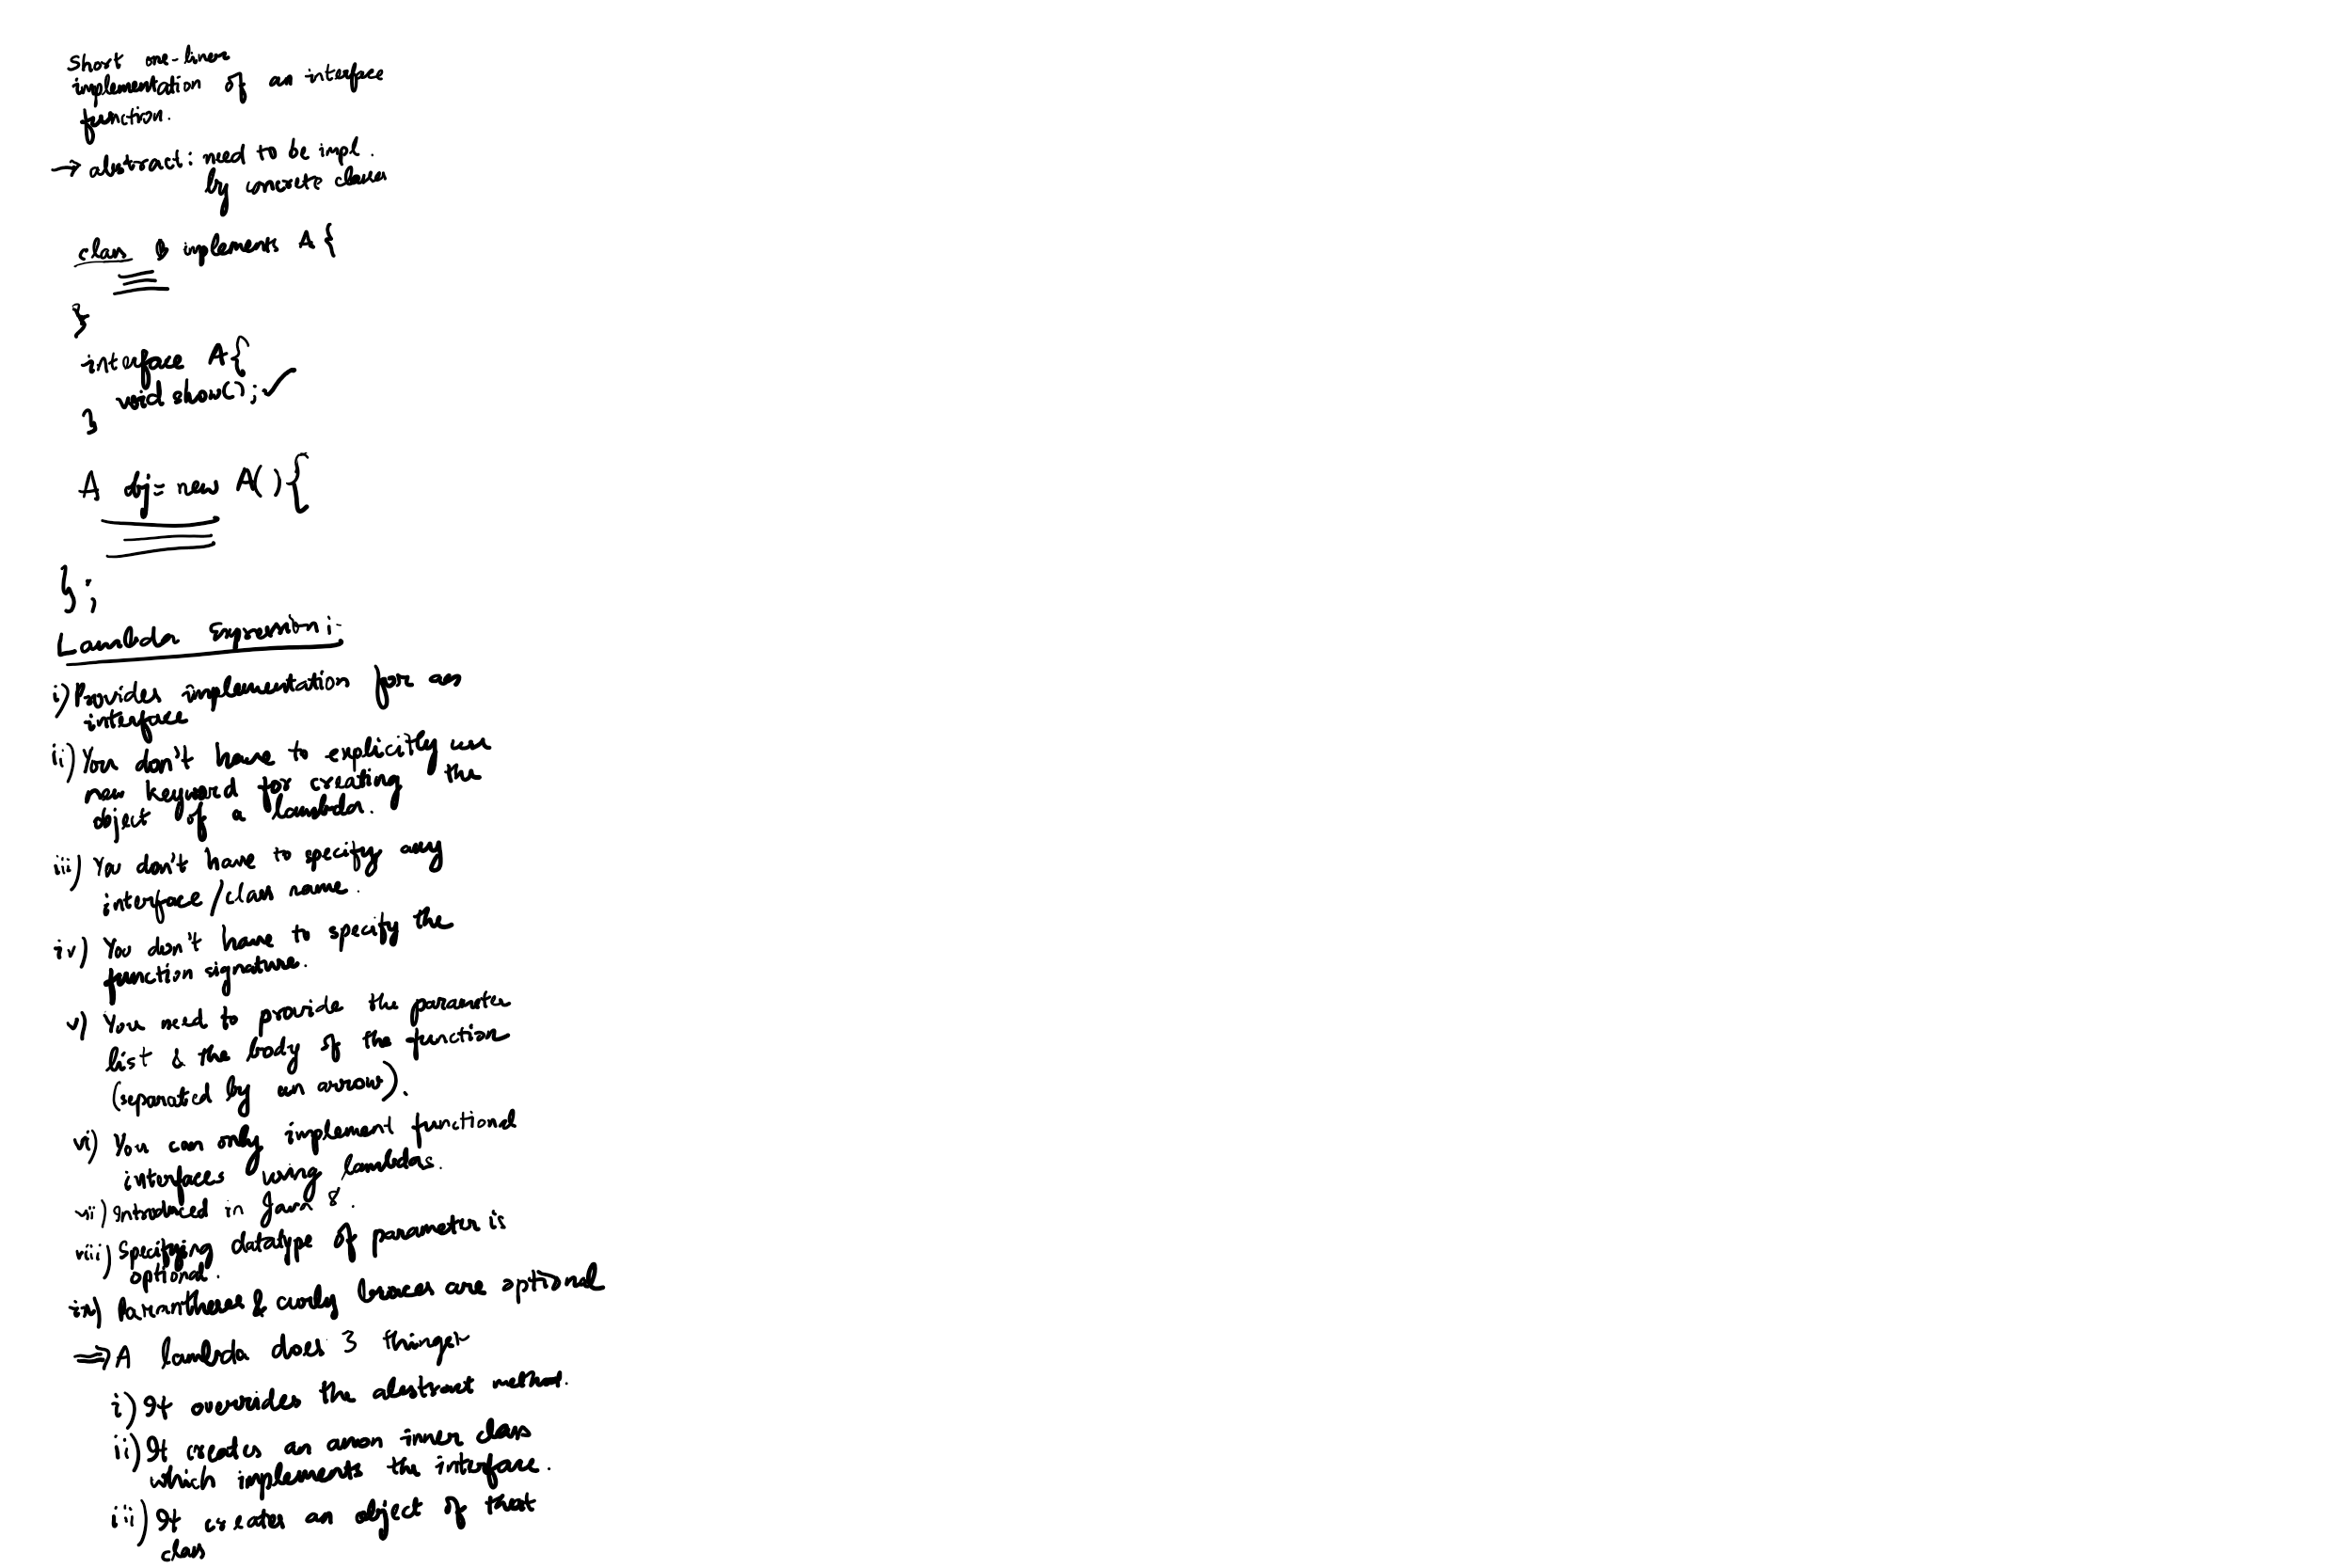 Short one-liner
implementation of an interface
function.
→ abstract: need to be impl.
by concrete classes
class B implements A {
}
interface A {
void show(); ✓
}
A obj = new A() {
};
Lambda Expression:-
i) Provides implementation for an
interface
ii) You don't have to explicitly use
new keyword for creating the
object of a lambda.
iii) You don't have to specify any
interface/class name.
iv) You don't have to specify the
function signature.
v) You need to provide the parameter
list & the body of the function
(separated by an arrow).
vi) You can only implement functional
interfaces using lambdas.
vii) Introduced in Java 8.
viii) Specifying datatype of parameter is
optional.
ix) Parantheses & curly braces are optional
⇒ A lambda does 3 things-
i) It overrides the abstract method.
ii) It creates an anon inner class
which implements the interface.
iii) It creates an object of that
class